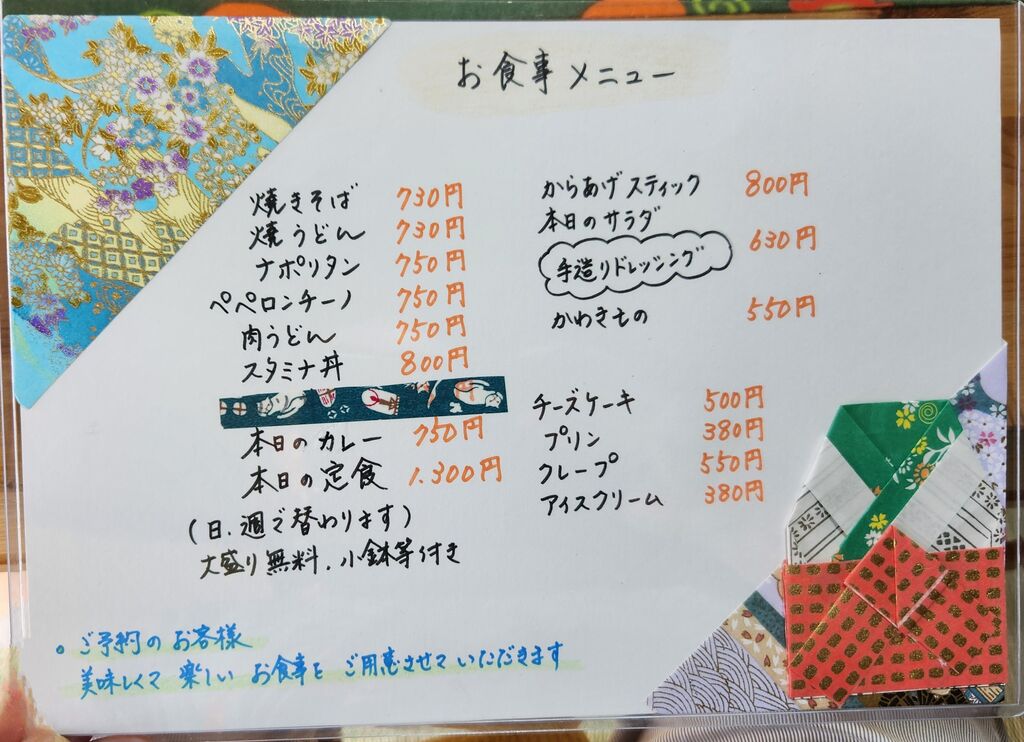 お食事メニュー
焼きそば 730円
焼うどん 730円
ナポリタン 750円
ペペロンチーノ 750円
肉うどん 750円
スタミナ丼 800円
本日のカレー 750円
本日の定食 1.300円
(日.週で替わります)
大盛り無料.小鉢等付き
からあげスティック 800円
本日のサラダ
手造りドレッシング 630円
かわきもの 550円
チーズケーキ 500円
プリン 380円
クレープ 550円
アイスクリーム 380円
。ご予約のお客様
美味しくて楽しいお食事をご用意させていただきます